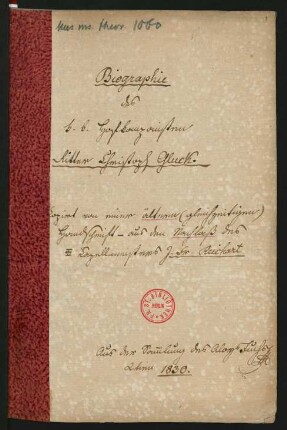 Mus. ms. theor. 1060
Biographie
des
k. k. Hofkomponisten
Ritter Christoph Gluck.
Copirt von einer ältern (gleichzeitigen)
Handschrift – aus dem Nachlaß des
Kapellmeisters J. Fr. Reichart
Aus der Sammlung des Aloys Fuchs
Wien 1830.